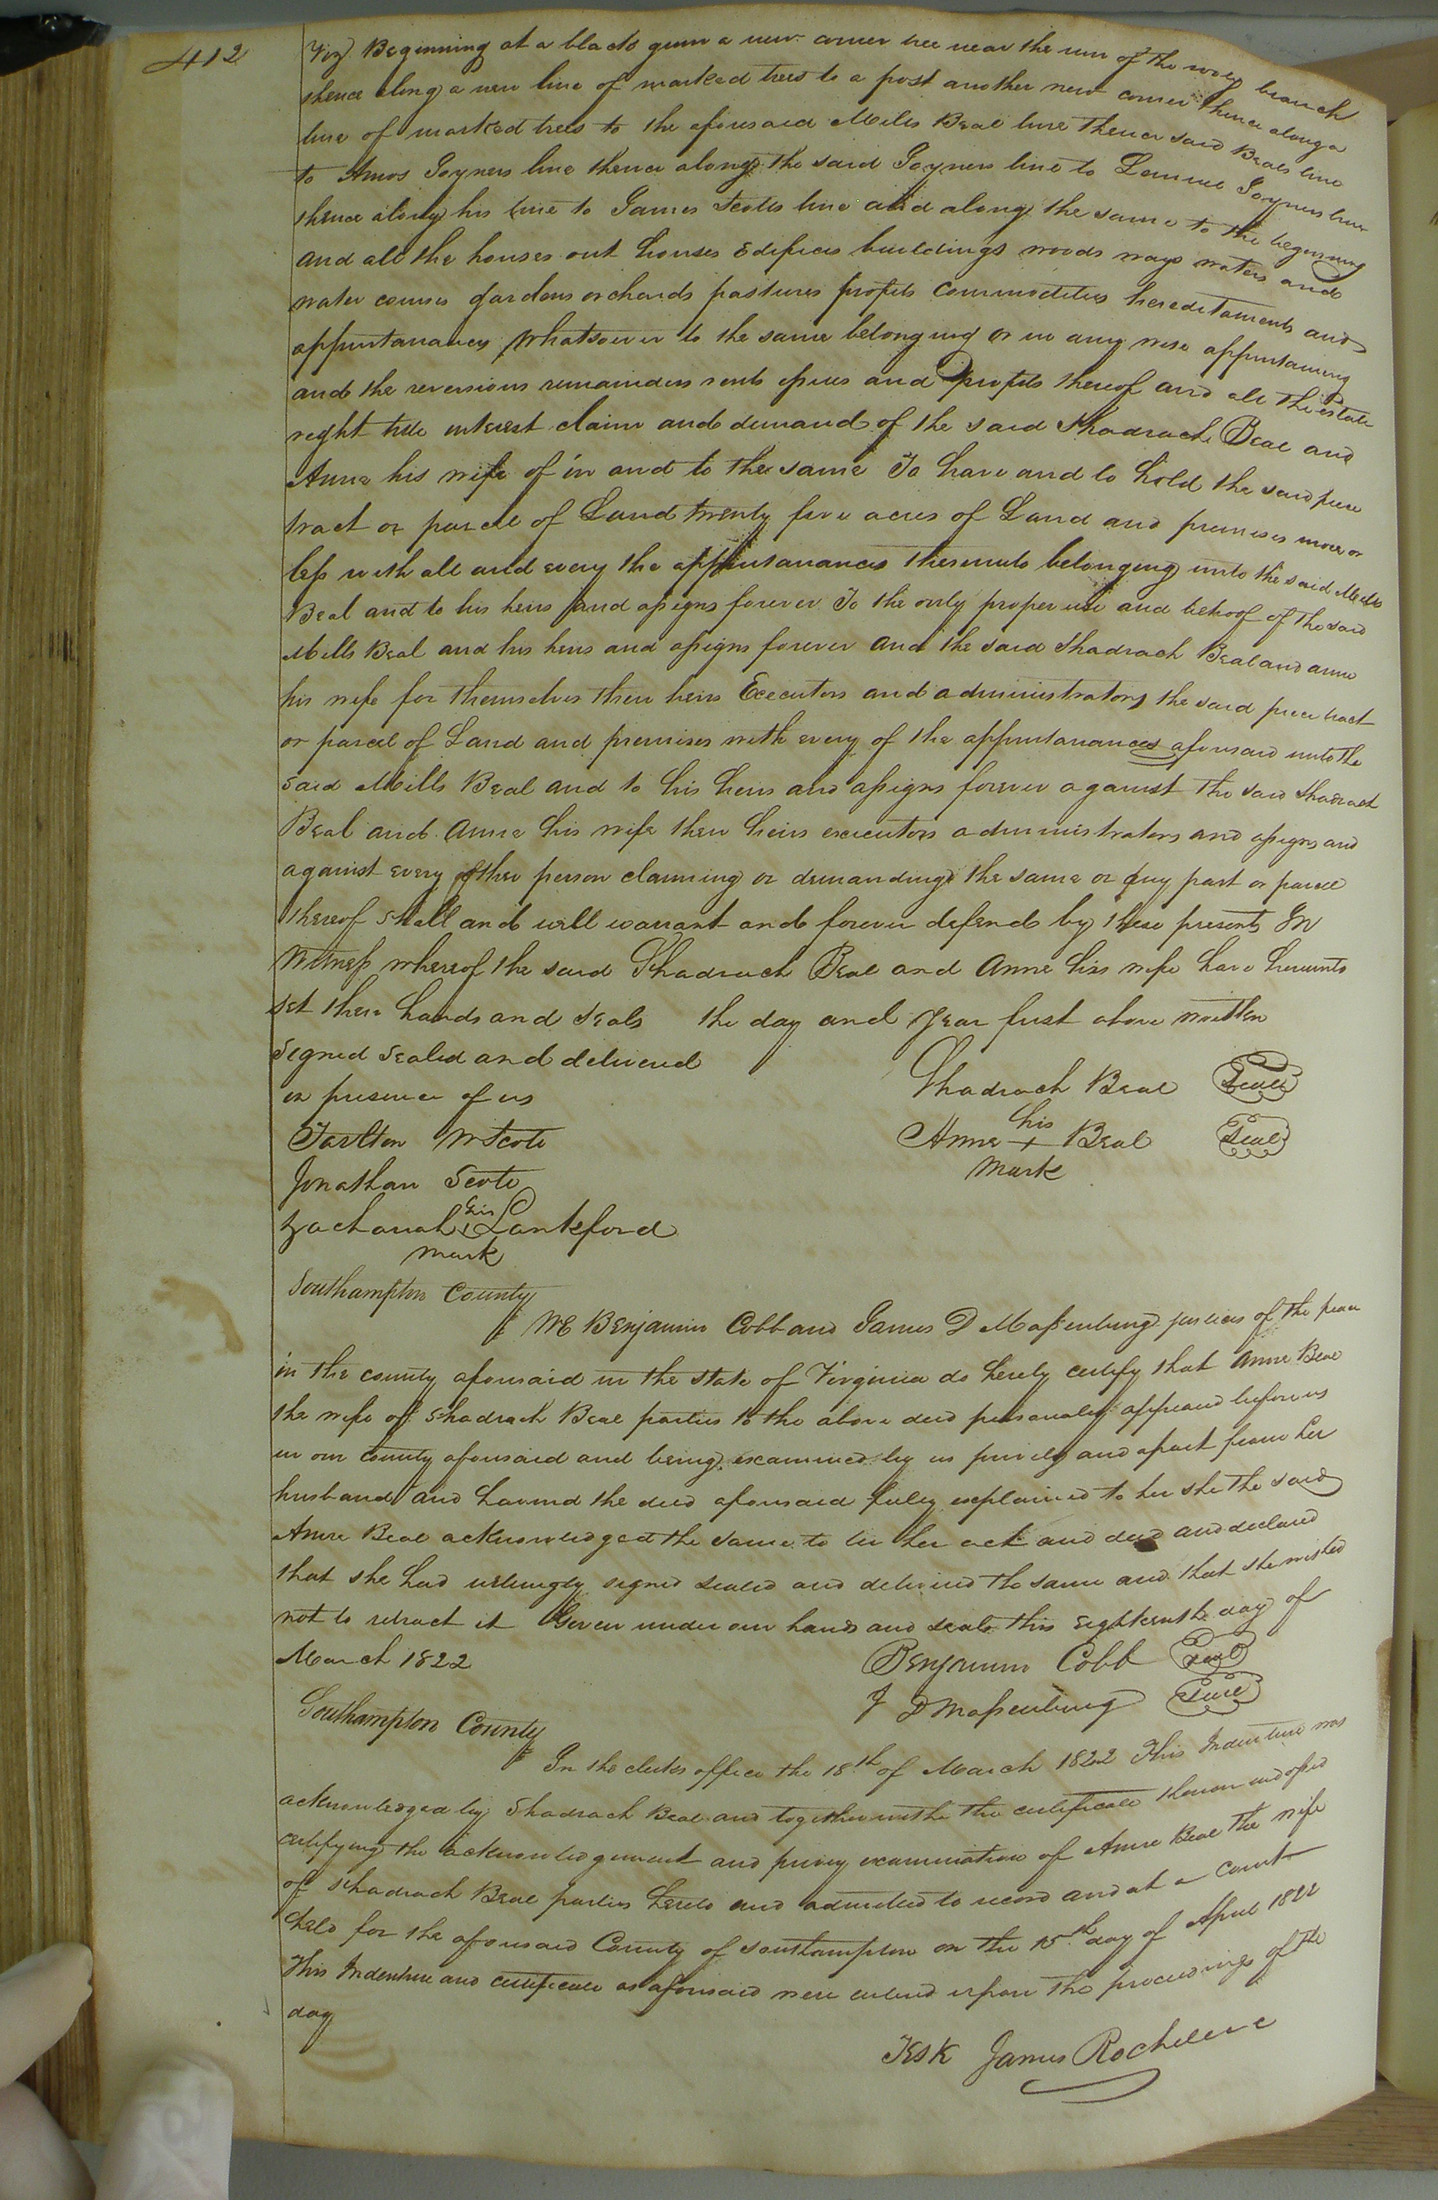 412
Viz) Beginning at a black gum a new corner tree near the run of the branch
thence along a new line of marked trees to a post another new corner thence along a
line of marked trees to the aforesaid Mills Beal line thence said Beals line
to Amos Joyners line thence along the said Joyners line to Lemuel Joyners line
thence along his line to James Scotts line and along the same to the beginning
and all the houses out houses Edifices buildings woods ways waters and
water courses gardens orchards pastures profits commodities hereditaments and
appurtanances whatsoever to the same belonging or in any wise appurtaining
and the reversions remainders rents issues and profits thereof and all the estate
right title interest claim and demand of the said Shadrach Beal and
Anne his wife of in and to the same To have and to hold the said piece
tract or parcel of Land twenty five acres of Land and premises more or
less with all and every the appurtanances thereunto belonging unto the said Mills
Beal and to his heirs and assigns forever To the only proper use and behoof of the said
Mills Beal and his heirs and assigns forever and the said Shadrach Beal and anne
his wife for themselves their heirs Executors and administrators the said piece tract
or parcel of Land and premises with every of the appurtanances aforesaid unto the
said Mills Beal and to his heirs and assigns forever against the said Shadrach
Beal and Anne his wife their heirs executors administrators and assigns and
against every other person claiming or demanding the same or any part or parcel
thereof shall and will warrant and forever defend by these presents In
Witness whereof the said Shadrach Beal and Anne his wife have hereunto
set there hands and seals the day and year first above written
Signed Sealed and delivered
in presence of us
Shadrach Beal Seal
Tarlton W Scott
his
Anne + Beal Seal
mark
Jonathan Scott
his
Zachariah + Lankford
mark
Southampton County
We Benjamin Cobb and James D Massenburg justices of the peace
in the county aforesaid in the state of Virginia do hereby certify that Anne Beal
the wife of Shadrach Beal parties to the above deed personally appeard before us
in our county aforesaid and being examined by us privily and apart from her
husband and havind the deed aforesaid fully explained to her she the said
Anne Beal acknowledged the same to be her act and deed and declared
that she had willingly signed sealed and delivered the same and that she wished
not to retract it Given under our hands and seals this eighteenth day of
March 1822
Benjamin Cobb Seal
J D Massenburg Seal
Southampton County
In the clerks office the 18th of March 1822 This Indenture was
acknowledged by Shadrach Beal and together withe the certificate thereon indorsed
certifying the acknowledgement and privy examination of Anne Beal the wife
of Shadrach Beal parties hereto and admitted to record and at a court
held for the aforesaid County of Southampton on the 15th day of April 1822
This Indenture and certificate as aforesaid were entered upon the proceedings of the
day
Teste James Rochelle